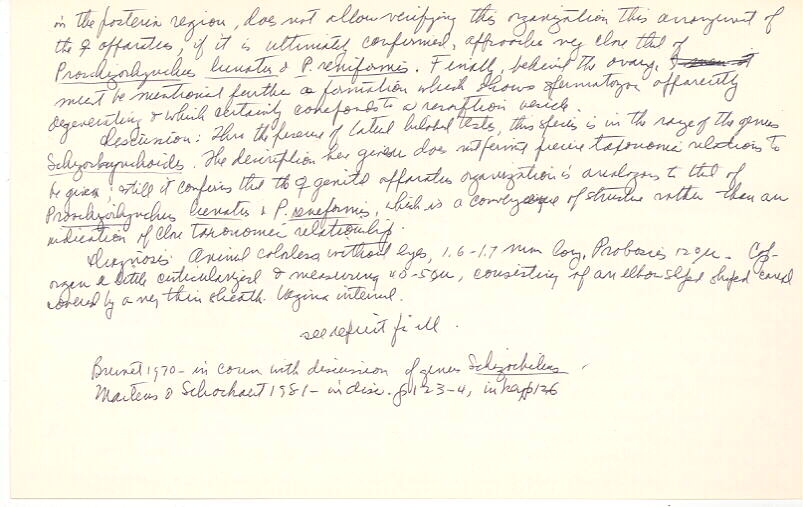 in the posterior region, does not allow verifying this organization this arrangement of
the ♀ apparatus, if it is ultimately confirmed, approaches very close that of
Proschizorhynchus lunatus & P. reniformis. Finally, behind the ovary,
must be mentioned further a formation which shows spermatozoa apparently
degenerating & which certainly corresponds to a resorption vesicle.
Discussion: Thru the presence of lateral bilobed testes, this species is in the range of the genus
Schizorhynchoides. The description here given does not permit precise taxonomic relations to
be given; still it confirms that the ♀ genital apparatus organization is analogous to that of
Proschizorhynchus lunatus & P. reneformis, which is a convergence of structure rather than an
indication of close taxonomic relationship.
Diagnosis: Animal colorless without eyes, 1.6-1.7 mm long. Proboscis 120μ. Cop.
organ a little cuticularized & measuring 40-50μ, consisting of an elbow shaped canal
covered by a very thin sheath. Vagina internal.
see deficit fi ill.
Brunet 1970 - in comm with discussion of genus Schizochilus
Martens & Schockaert 1981 - in disc. p 123-4, in key p 126